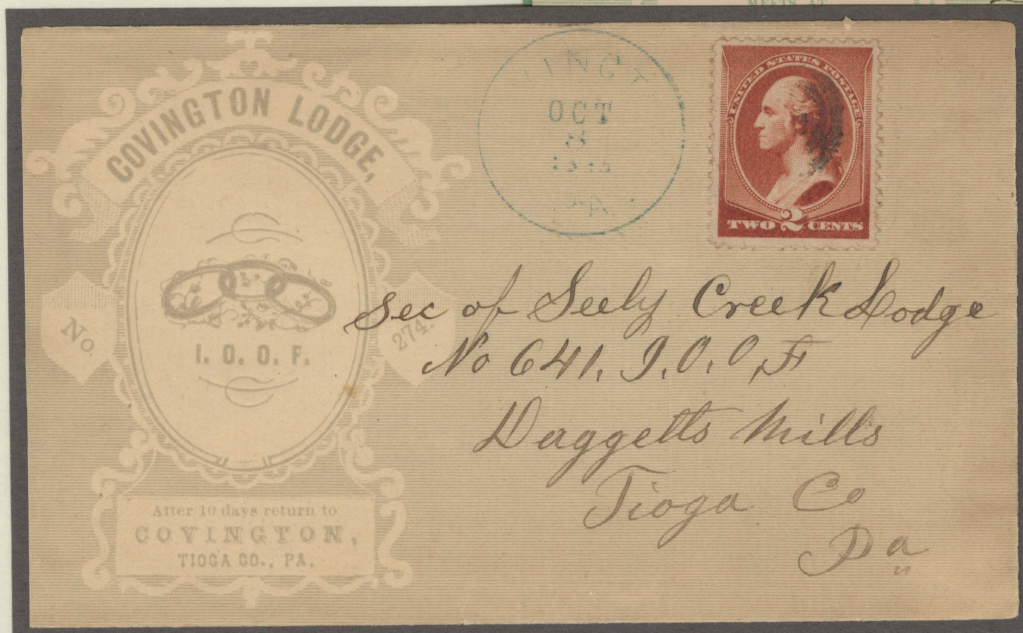 COVINGTON LODGE,
No. 274.
I. O. O. F.
After 10 days return to
COVINGTON,
TIOGA CO., PA.
OCT
UNITED STATES POSTAGE
TWO 2 CENTS
Sec of Seely Creek Lodge
No 641, I. O. O, F
Daggetts Mills
Tioga Co
Pa